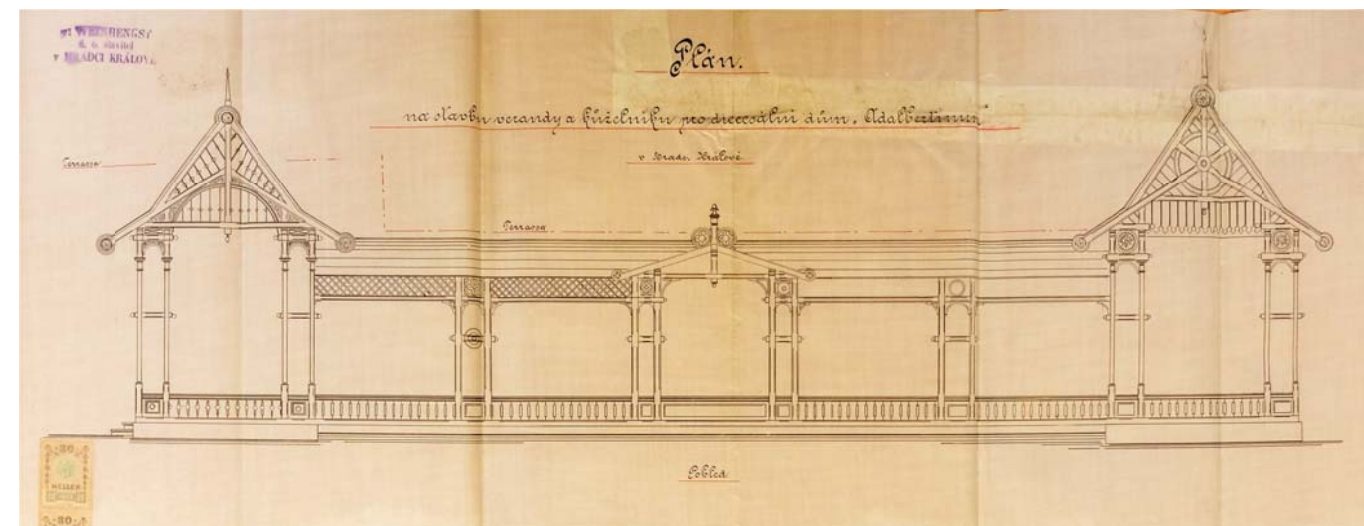 WEINHENGST
d. o. stavitel
v HRADCI KRÁLOVÉ
Plán.
na stavbu verandy a kůželníku pro diecesální dům „Adalbertinum"
v Hradc. Králové.
Terrassa
Terrassa
Pohled
80
HELLER
80